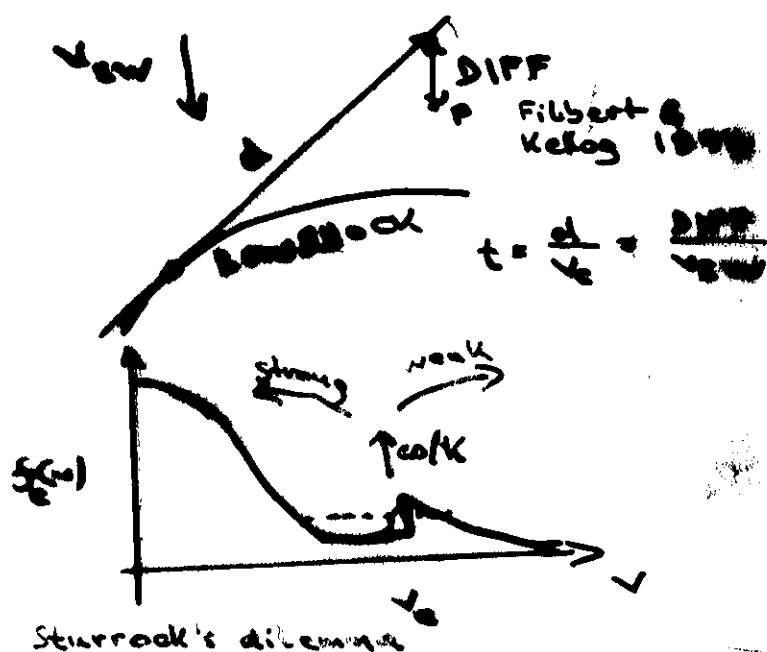 V SW
DIFF
P
Filbert &
Kellog
d
t = d/Ve = DIFF/VSW
strong
weak
ω/k
fe(v)
Ve
V
Sturrock's dilemma